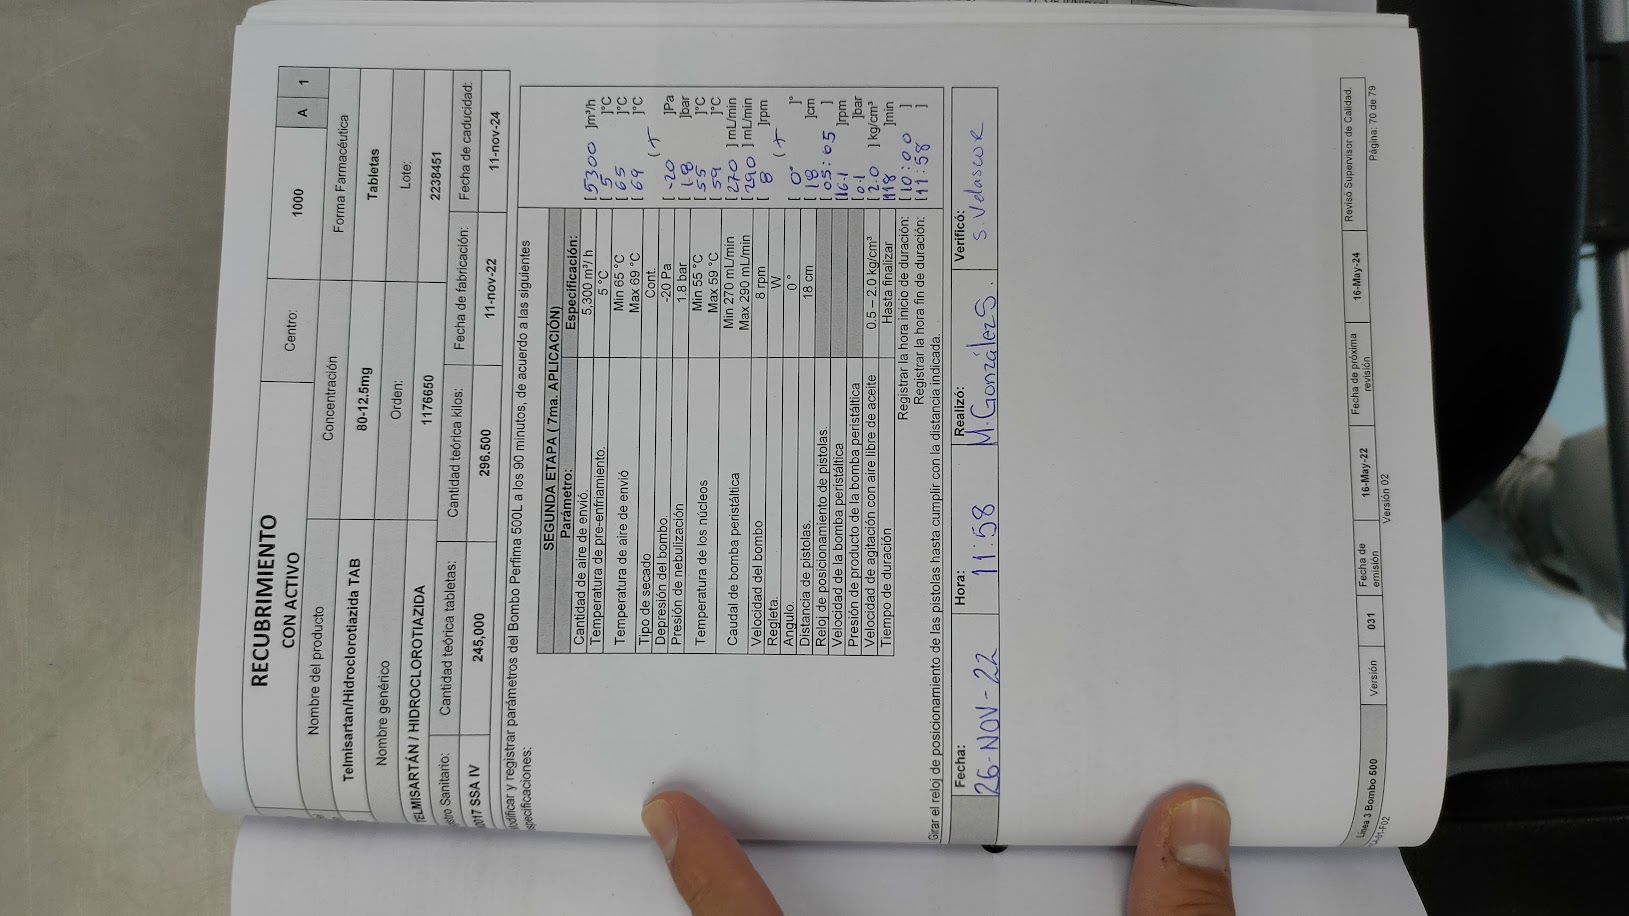 RECUBRIMIENTO
CON ACTIVO
Centro:
1000
A
1
Nombre del producto
Concentración
Forma Farmacéutica
Telmisartan/Hidroclorotiazida TAB
80-12.5mg
Tabletas
Nombre genérico
Orden:
Lote:
TELMISARTÁN / HIDROCLOROTIAZIDA
1176650
2238451
stro Sanitario:
Cantidad teórica tabletas:
Cantidad teórica kilos:
Fecha de fabricación:
Fecha de caducidad:
017 SSA IV
245,000
296.500
11-nov-22
11-nov-24
odificar y registrar parámetros del Bombo Perfima 500L a los 90 minutos, de acuerdo a las siguientes
specificaciones:
SEGUNDA ETAPA ( 7ma. APLICACIÓN)
Parámetro: Especificación:
Cantidad de aire de envió. 5,300 m³/ h [ 5300 ]m³/h
Temperatura de pre-enfriamiento. 5 °C [ 5 ]°C
Temperatura de aire de envió Min 65 °C [ 65 ]°C
Max 69 °C [ 69 ]°C
Tipo de secado Cont.
Depresión del bombo. -20 Pa [ -20 ]Pa
Presión de nebulización 1.8 bar [ 1.8 ]bar
Temperatura de los núcleos Min 55 °C [ 55 ]°C
Max 59 °C [ 59 ]°C
Caudal de bomba peristáltica Min 270 mL/min [ 270 ] mL/min
Max 290 mL/min [ 290 ] mL/min
Velocidad del bombo 8 rpm [ 8 ]rpm
Regleta. W
Angulo. 0 ° [ 0° ]°
Distancia de pistolas. 18 cm [ 18 ]cm
Reloj de posicionamiento de pistolas. [ 05:05 ]
Velocidad de la bomba peristáltica [ 16.1 ]rpm
Presión de producto de la bomba peristáltica [ 0.1 ]bar
Velocidad de agitación con aire libre de aceite 0.5 – 2.0 kg/cm³ [ 2.0 ] kg/cm³
Tiempo de duración Hasta finalizar [ 118 ]min
Registrar la hora inicio de duración: [ 10:00 ]
Registrar la hora fin de duración: [ 11:58 ]
Girar el reloj de posicionamiento de las pistolas hasta cumplir con la distancia indicada.
Fecha: Hora: Realizó: Verificó:
26-NOV-22 11:58 M. González S. S. Velascor
Línea 3 Bombo 500
Versión
031
Fecha de emisión
16-May-22
Fecha de próxima revisión
16-May-24
Revisó Supervisor de Calidad.
-01-F02
Versión 02
Página: 70 de 79